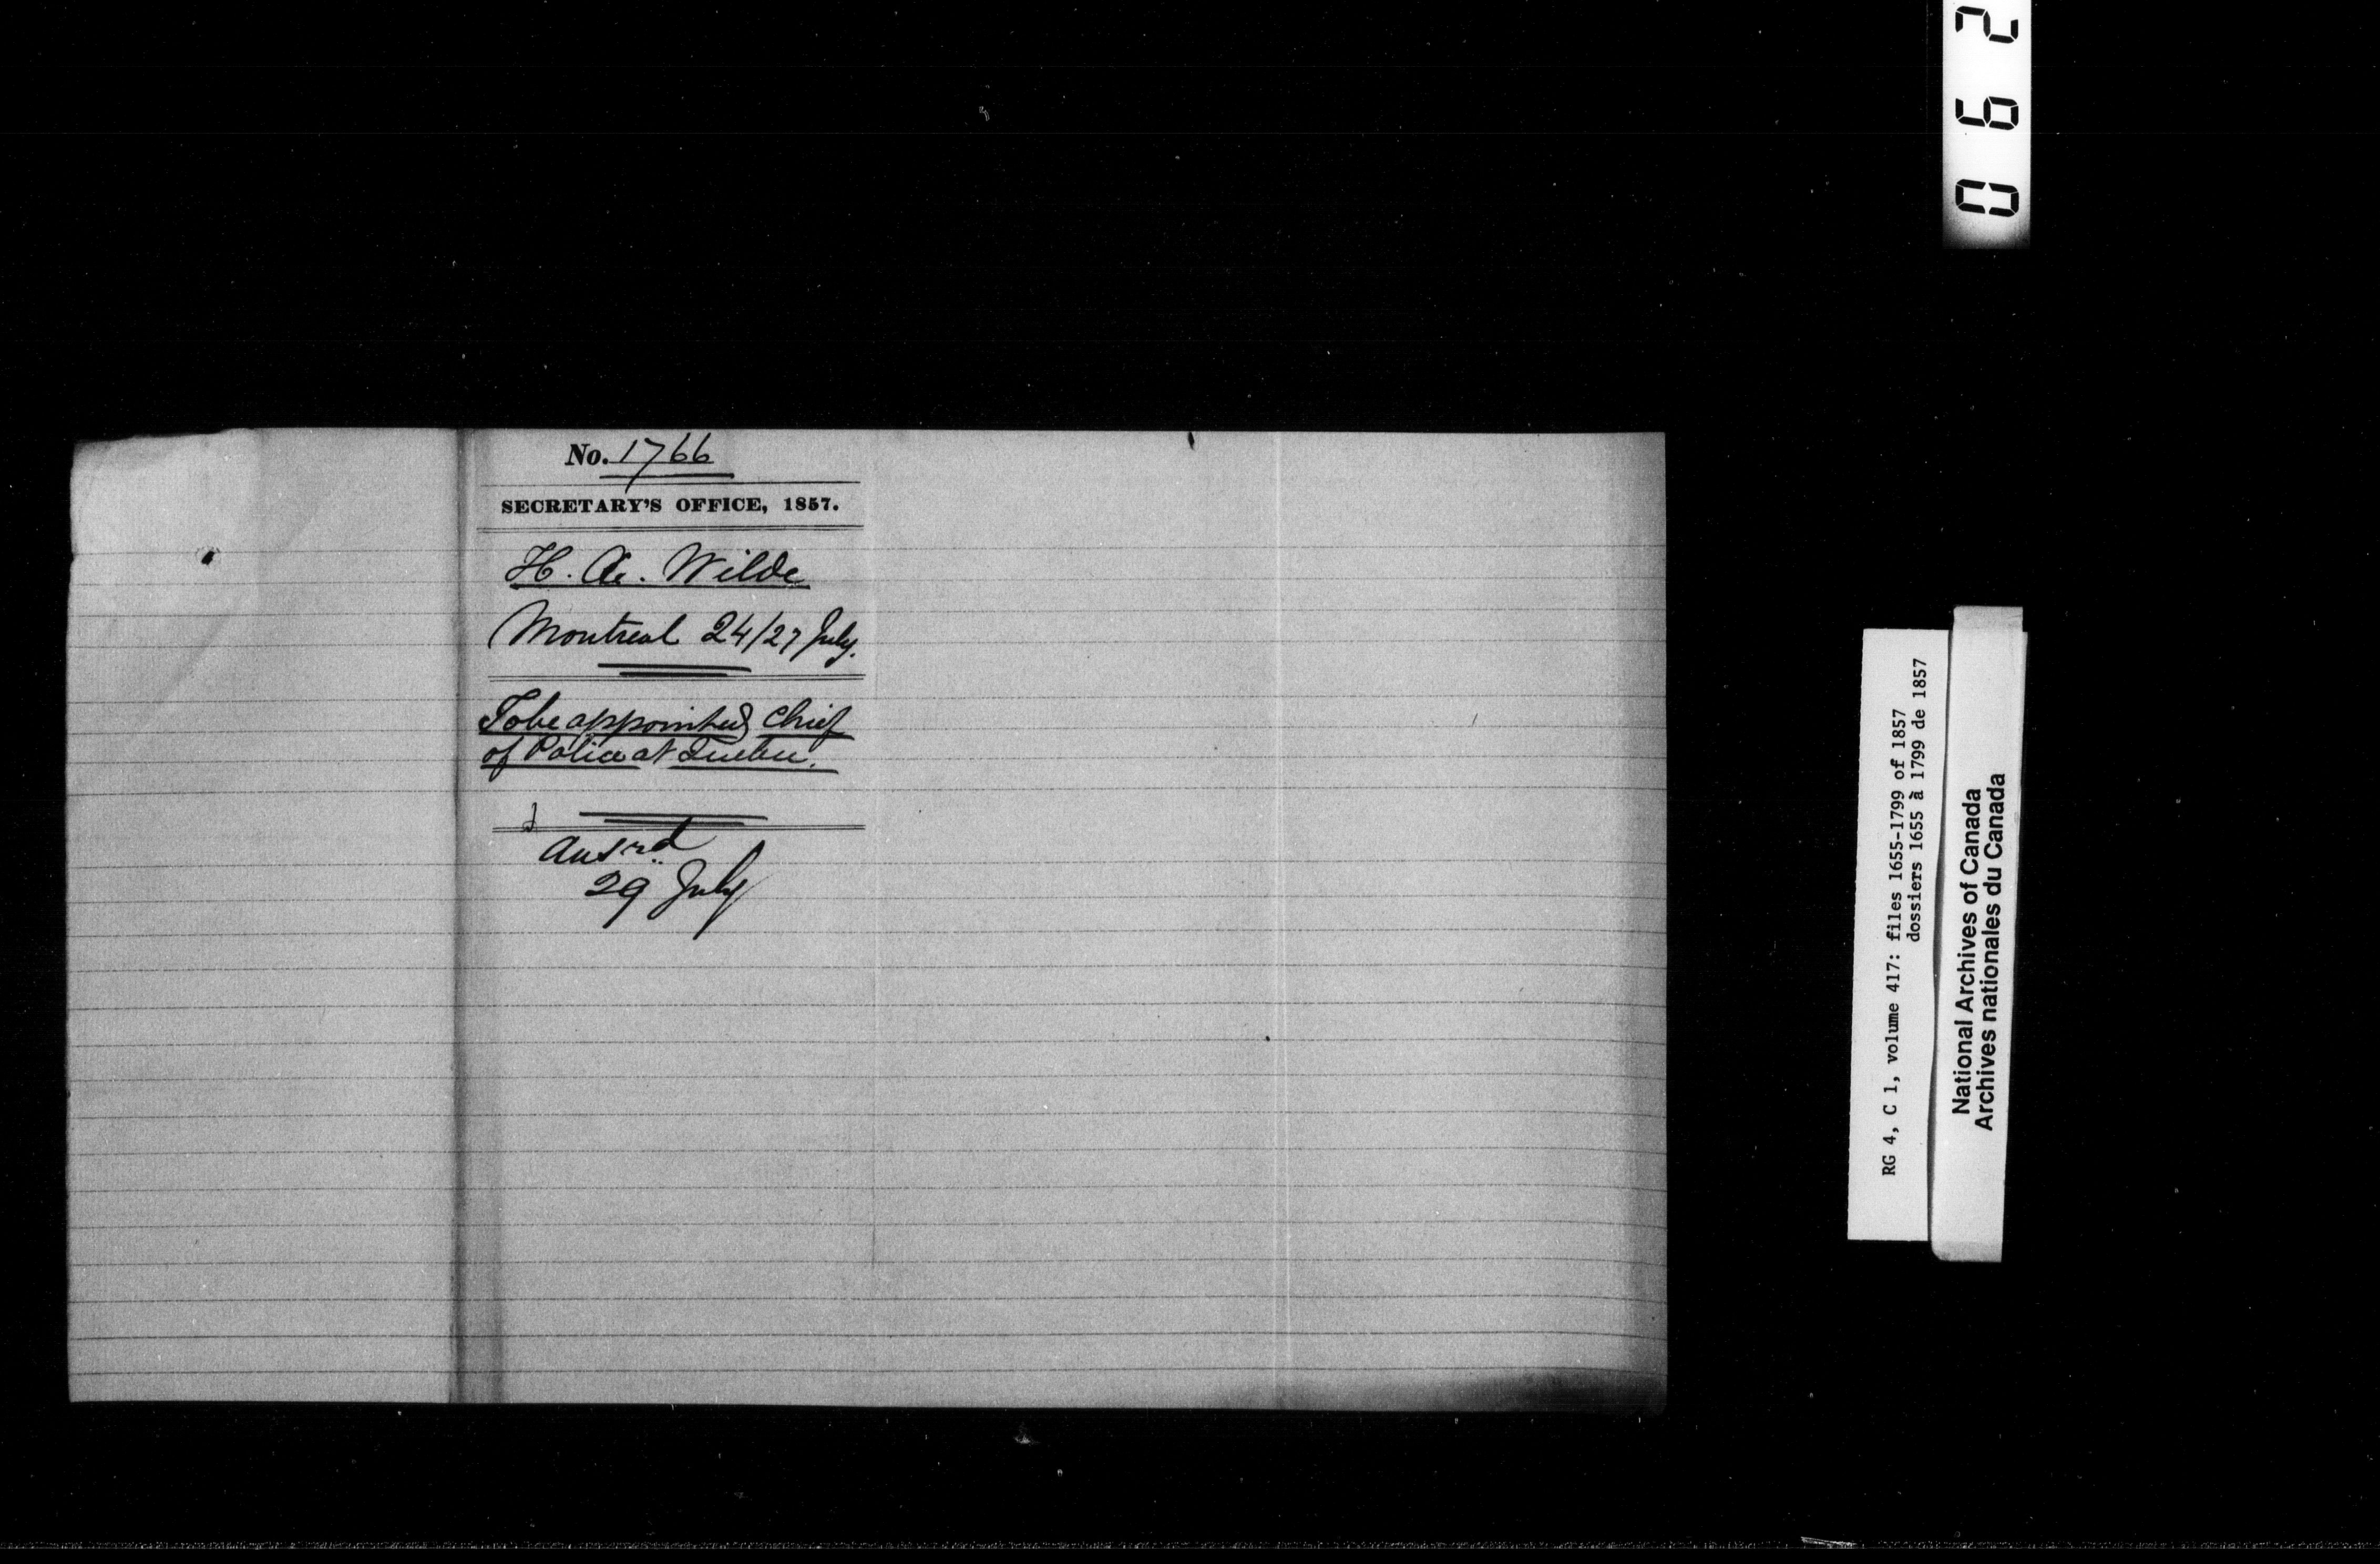 No. 1766
SECRETARY'S OFFICE, 1857.
H. A. Wilde
Montreal 24/27 July.
To be appointed Chief
of Police at Quebec.
Ansrd
29 July
RG 4, C 1, volume 417: files 1655-1799 of 1857
dossiers 1655 à 1799 de 1857
National Archives of Canada
Archives nationales du Canada
0 6 2